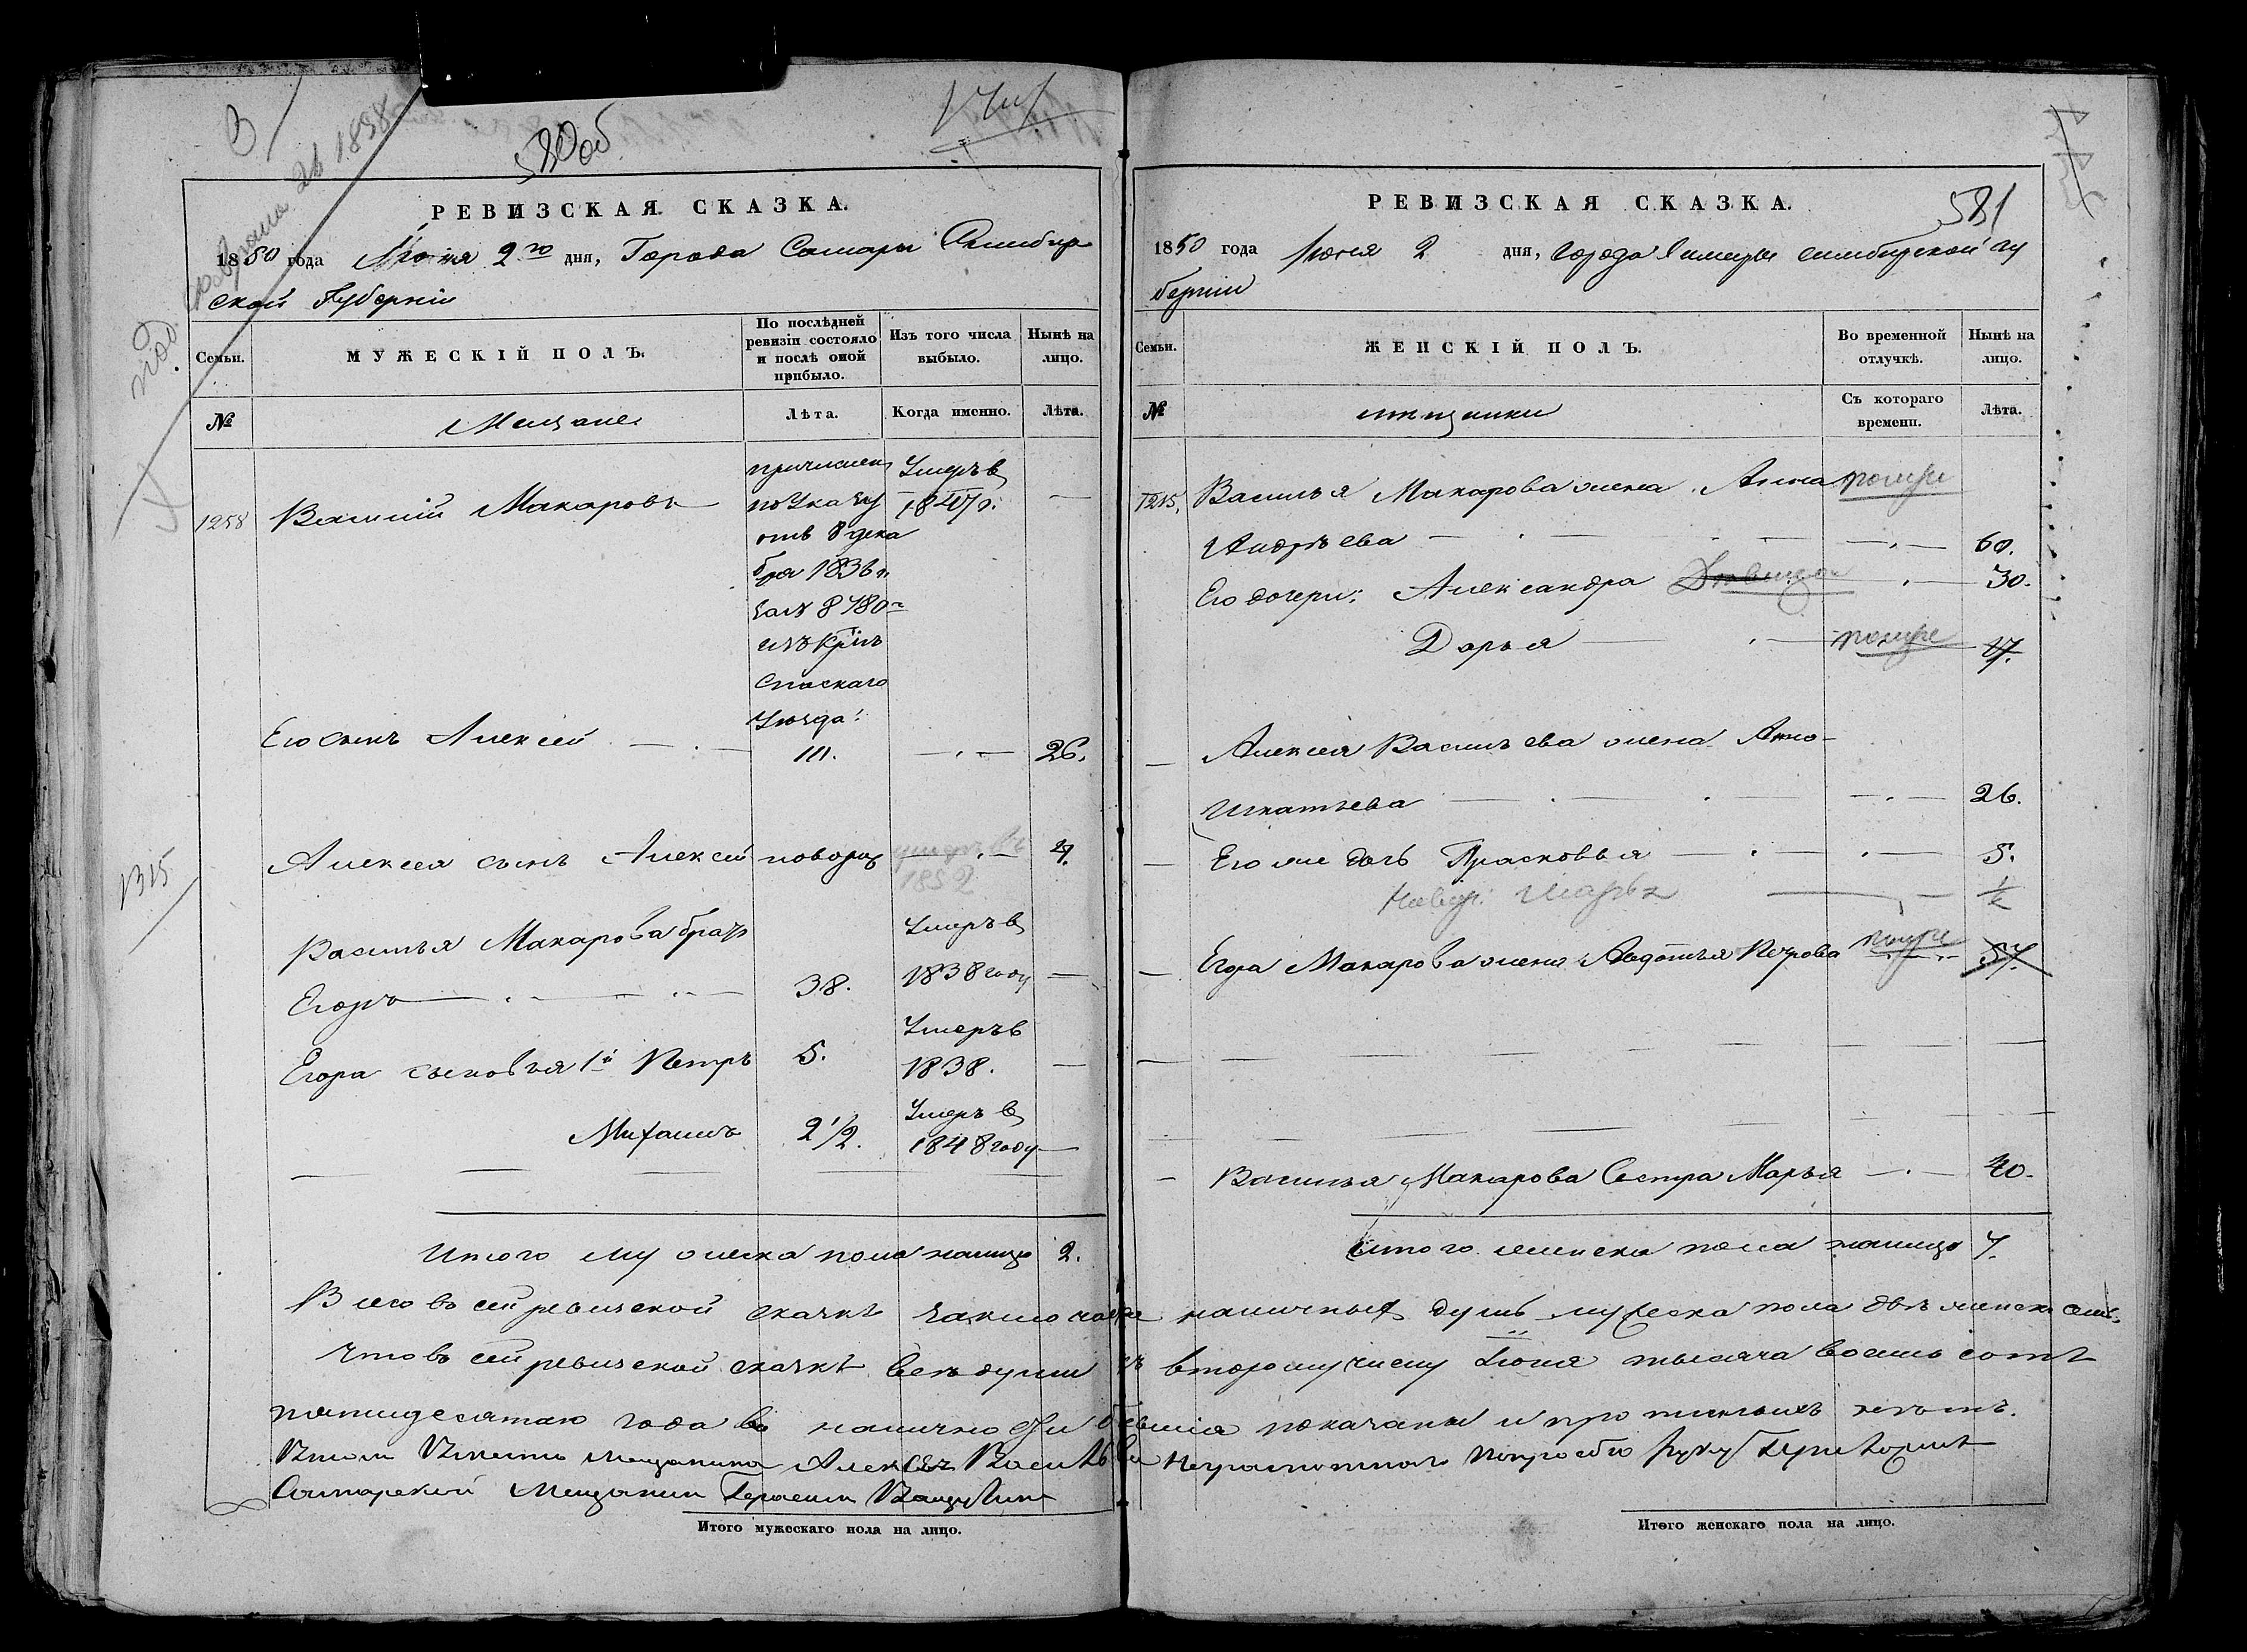 580об
РЕВИЗСКАЯ СКАЗКА.
1850 года Июня 2го дня, Города Самары Симбир
ской Губернiи
Семьи.
МУЖЕСКIЙ ПОЛЪ.
По послѣдней ревизiи состояло и послѣ оной прибыло.
Изъ того числа выбыло.
Нынѣ на лицо.
№
Мещане
Лѣта.
Когда именно.
Лѣта.
1258
Василiй Макаровъ
причислен
по Указу
отъ 8 дека
бря 1836 г.
за № 8780
изъ Крѣп
Спаскаго
Уѣзда:
Умеръ в
1847 г.
Его сынъ Алексей
26.
Алексея сынъ Алексей новорож
умеръ въ
1852
4.
1315
Василья Макарова братъ
Егоръ
38.
Умеръ в
1838 году
Егора сыновья 1й Петръ
5.
Умеръ в
1838.
Михаилъ
2 1/2.
Умеръ в
1848 году
Итого мужеска пола налицо 2.
РЕВИЗСКАЯ СКАЗКА.
581
1850 года Июня 2 дня, города Самары симбирской гу
бернии
Семьи.
ЖЕНСКIЙ ПОЛЪ.
Во временной отлучкѣ.
Нынѣ на лицо.
№
мещанки
Съ котораго времени.
Лѣта.
1215.
Василья Макарова жена Анна
Андрѣева
60.
Его дочери: Александра
30.
Дарья
17.
Алексея Васильева жена Анна
Игнатьева
26.
Его же дочь Прасковья
5.
Новор: Марья
1/2
Егора Макарова жена Авдотья Петрова
57.
Василья Макарова Сестра Марья
40.
Итого женска пола налицо 7.
Всего въ сей ревизской сказкѣ заключается наличныхъ душъ мужеска пола двѣ женска семь.
Что въ сей ревизской сказкѣ всѣ души къ второму числу Iюня тысяча восемь сотъ
пятидесятаго года въ наличности бывшiя показаны и прописныхъ нетъ.
Въ томъ Вместо мещанина Алексея Васильева неграмотнаго по просьбе руку приложилъ
Самарской Мещанин Герасим
Итого мужескаго пола на лицо.
Итого женскаго пола на лицо.